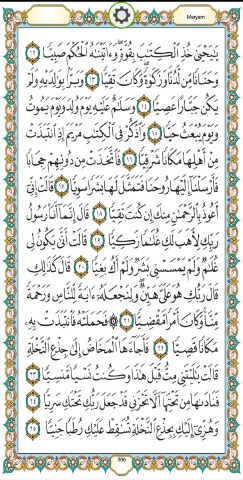 Maryam
يَٰيَحْيَىٰ خُذِ ٱلْكِتَٰبَ بِقُوَّةٍ ۖ وَءَاتَيْنَٰهُ ٱلْحُكْمَ صَبِيًّا ١٢
وَحَنَانًا مِّن لَّدُنَّا وَزَكَوٰةً ۖ وَكَانَ تَقِيًّا ١٣ وَبَرًّۢا بِوَٰلِدَيْهِ وَلَمْ
يَكُن جَبَّارًا عَصِيًّا ١٤ وَسَلَٰمٌ عَلَيْهِ يَوْمَ وُلِدَ وَيَوْمَ يَمُوتُ
وَيَوْمَ يُبْعَثُ حَيًّا ١٥ وَٱذْكُرْ فِى ٱلْكِتَٰبِ مَرْيَمَ إِذِ ٱنتَبَذَتْ
مِنْ أَهْلِهَا مَكَانًا شَرْقِيًّا ١٦ فَٱتَّخَذَتْ مِن دُونِهِمْ حِجَابًا
فَأَرْسَلْنَآ إِلَيْهَا رُوحَنَا فَتَمَثَّلَ لَهَا بَشَرًا سَوِيًّا ١٧ قَالَتْ إِنِّىٓ
أَعُوذُ بِٱلرَّحْمَٰنِ مِنكَ إِن كُنتَ تَقِيًّا ١٨ قَالَ إِنَّمَآ أَنَا۠ رَسُولُ
رَبِّكِ لِأَهَبَ لَكِ غُلَٰمًا زَكِيًّا ١٩ قَالَتْ أَنَّىٰ يَكُونُ لِى
غُلَٰمٌ وَلَمْ يَمْسَسْنِى بَشَرٌ وَلَمْ أَكُ بَغِيًّا ٢٠ قَالَ كَذَٰلِكِ
قَالَ رَبُّكِ هُوَ عَلَىَّ هَيِّنٌ ۖ وَلِنَجْعَلَهُۥٓ ءَايَةً لِّلنَّاسِ وَرَحْمَةً
مِّنَّا ۚ وَكَانَ أَمْرًا مَّقْضِيًّا ٢١ فَحَمَلَتْهُ فَٱنتَبَذَتْ بِهِۦ
مَكَانًا قَصِيًّا ٢٢ فَأَجَآءَهَا ٱلْمَخَاضُ إِلَىٰ جِذْعِ ٱلنَّخْلَةِ
قَالَتْ يَٰلَيْتَنِى مِتُّ قَبْلَ هَٰذَا وَكُنتُ نَسْيًا مَّنسِيًّا ٢٣
فَنَادَىٰهَا مِن تَحْتِهَآ أَلَّا تَحْزَنِى قَدْ جَعَلَ رَبُّكِ تَحْتَكِ سَرِيًّا ٢٤
وَهُزِّىٓ إِلَيْكِ بِجِذْعِ ٱلنَّخْلَةِ تُسَٰقِطْ عَلَيْكِ رُطَبًا جَنِيًّا ٢٥
306